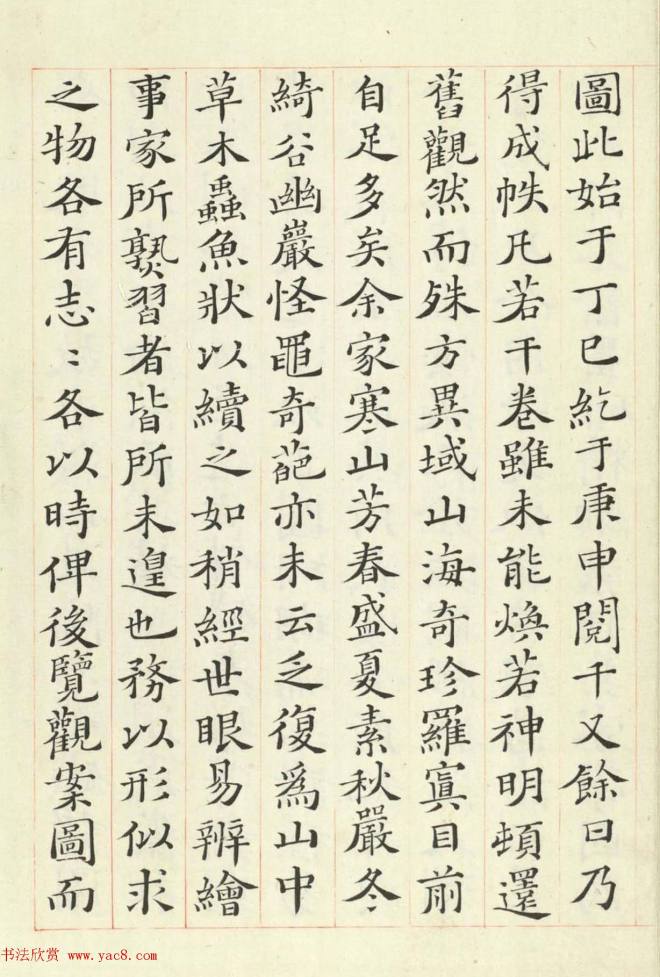 圖此始于丁巳紇于庚申閱千又餘日乃
得成帙凡若干卷雖未能煥若神明頓還
舊觀然而殊方異域山海奇珍羅寘目前
自足多矣余家寒山芳春盛夏素秋嚴冬
綺谷幽巖怪黽奇葩亦未云乏復為山中
草木蟲魚狀以續之如稍經世眼易辨繪
事家所爂習者皆所未遑也務以形似求
之物各有志〻各以時俾後覽觀案圖而
书法欣赏 www.yac8.com